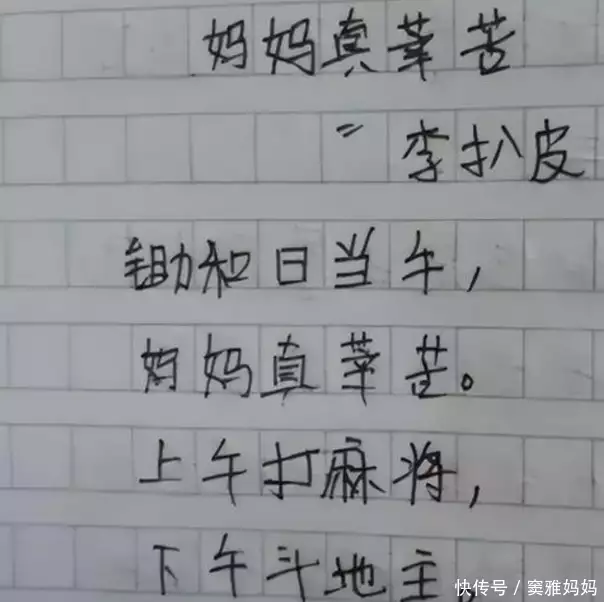 妈妈真莘苦
〃李扒皮
锄和日当午，
妈妈真莘苦。
上午打麻将，
下午斗地主。
快传号／窦雅妈妈